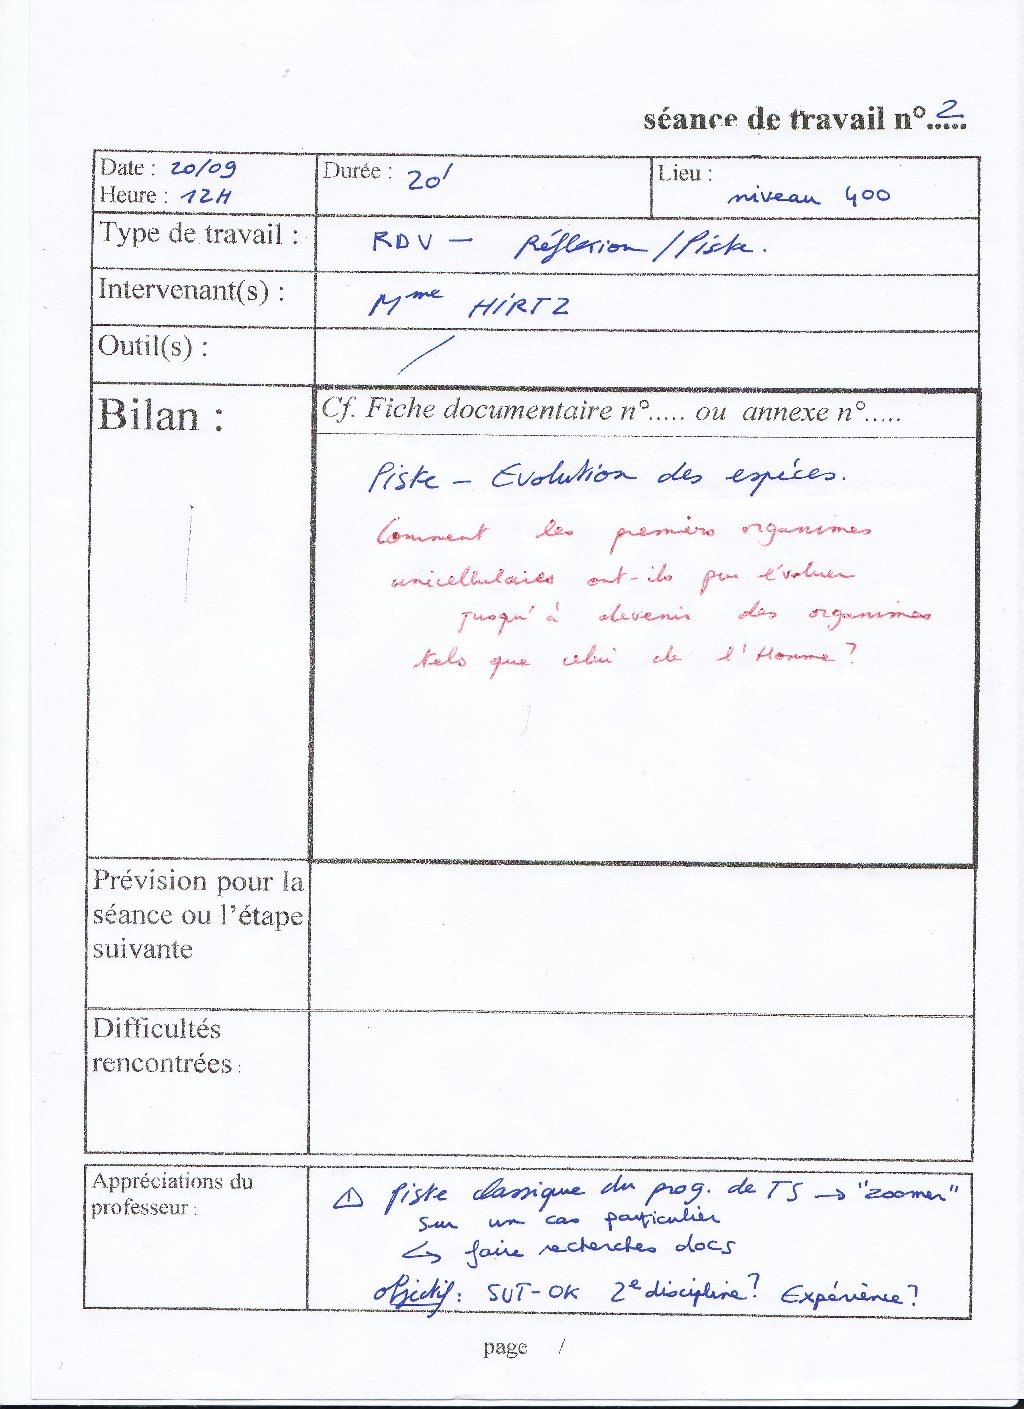 séance de travail n°..2..
Date : 20/09
Heure : 12H
Durée : 20'
Lieu :
niveau 400
Type de travail :
RDV — Réflexion / Piste.
Intervenant(s) :
Mme HIRTZ
Outil(s) :
/
Bilan :
Cf. Fiche documentaire n°..... ou annexe n°.....
Piste — Evolution des espéces.
Comment les premiers organimes
unicellulaires ont-ils pu évoluer
jusqu'à devenir des organimes
tels que celui de l'Homme ?
Prévision pour la
séance ou l'étape
suivante
Difficultés
rencontrées :
Appréciations du
professeur :
⚠ piste classique du prog. de TS → "zoomer"
sur un cas particulier
↪ faire recherches docs
objectif : SVT-OK 2e discipline ? Expérience ?
page /